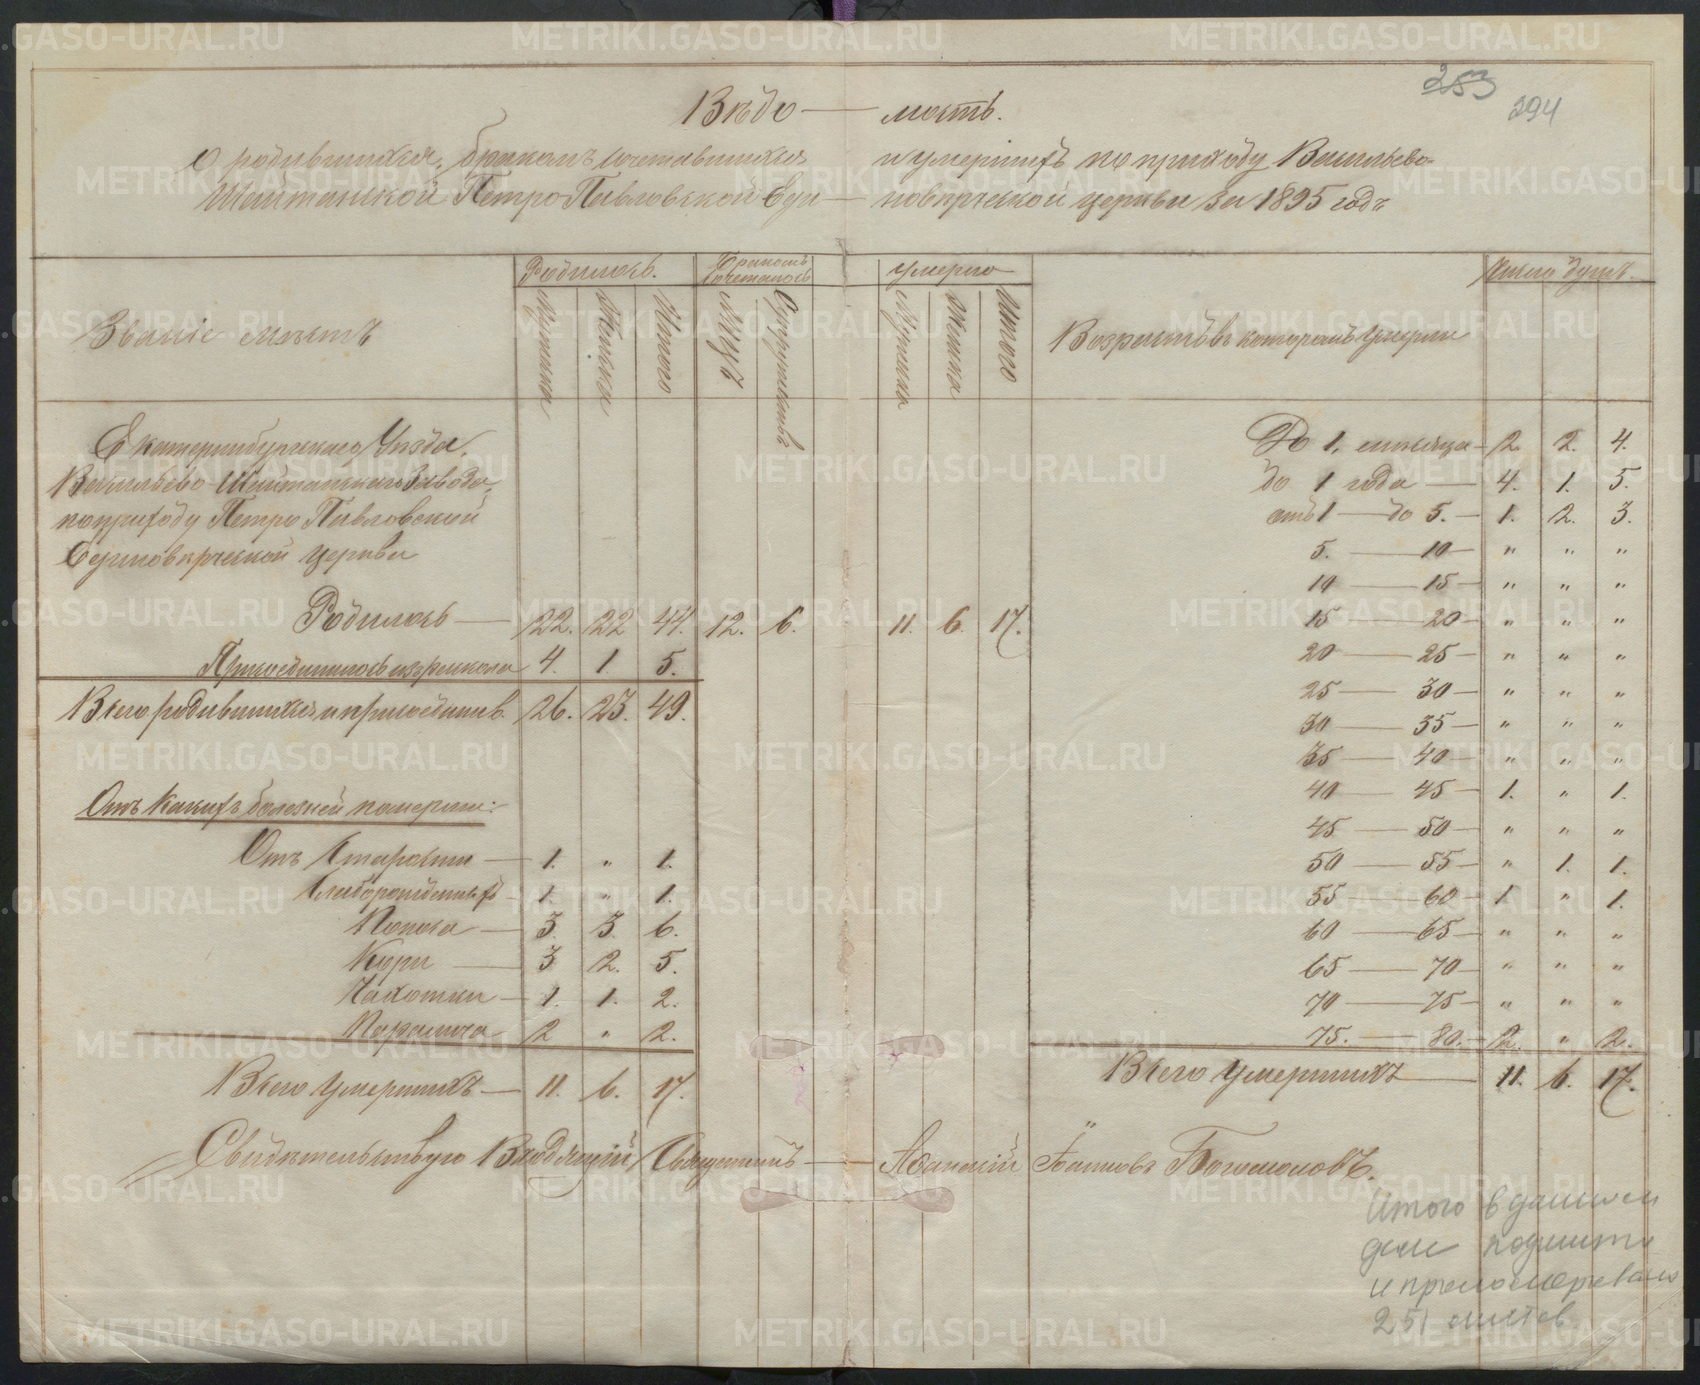 253
294
Вѣдо — мость.
о родившихся, бракомъ сочетавшихся и умершихъ по приходу Васильево-
Шайтанской Петро-Павловской Еди — новѣрческой церкви за 1895 годъ
Званіе мѣстъ
Родилось.
Мужска
Женска
Итого
Бракомъ сочеталось
Мужъ
Супружествъ
Умерло
Мужска
Женска
Итого
Возрастъ въ которомъ умерли
Число душъ.
Екатеринбургскаго Уѣзда,
Васильево-Шайтанскаго Завода,
по приходу Петро Павловской
Единовѣрческой церкви
Родилось — 22. 22 44. 12. 6. 11. 6. 17.
Присоединилось изъ раскола 4. 1 5.
Всего родившихся и присоединив. 26. 23. 49.
Отъ какихъ болезней померли:
Отъ Старости — 1. " 1.
Слаборожденныхъ — 1. " 1.
Поноса — 3. 3. 6.
Кори — 3 2. 5.
Чахотки — 1. 1. 2.
Паралича 2 " 2.
Всего Умершихъ — 11. 6. 17.
До 1. мѣсяца — 2. 2. 4.
до 1 года — 4. 1. 5.
отъ 1 — до 5. — 1. 2. 3.
5. — 10 — " " "
10 — 15 — " " "
15 — 20 — " " "
20 — 25 — " " "
25 — 30 — " " "
30 — 35 — " " "
35 — 40 — " " "
40 — 45 — 1. " 1.
45 — 50 — " " "
50 — 55 — " 1. 1.
55 — 60 — 1 " 1.
60 — 65 — " " "
65 — 70 — " " "
70 — 75 — " " "
75. — 80. — 2. " 2.
Всего Умершихъ — 11. 6. 17.
Свидѣтельствую Священникъ — Богомоловъ.
Итого в данном
деле подшито
и пронумеровано
251 листов.
METRIKI.GASO-URAL.RU